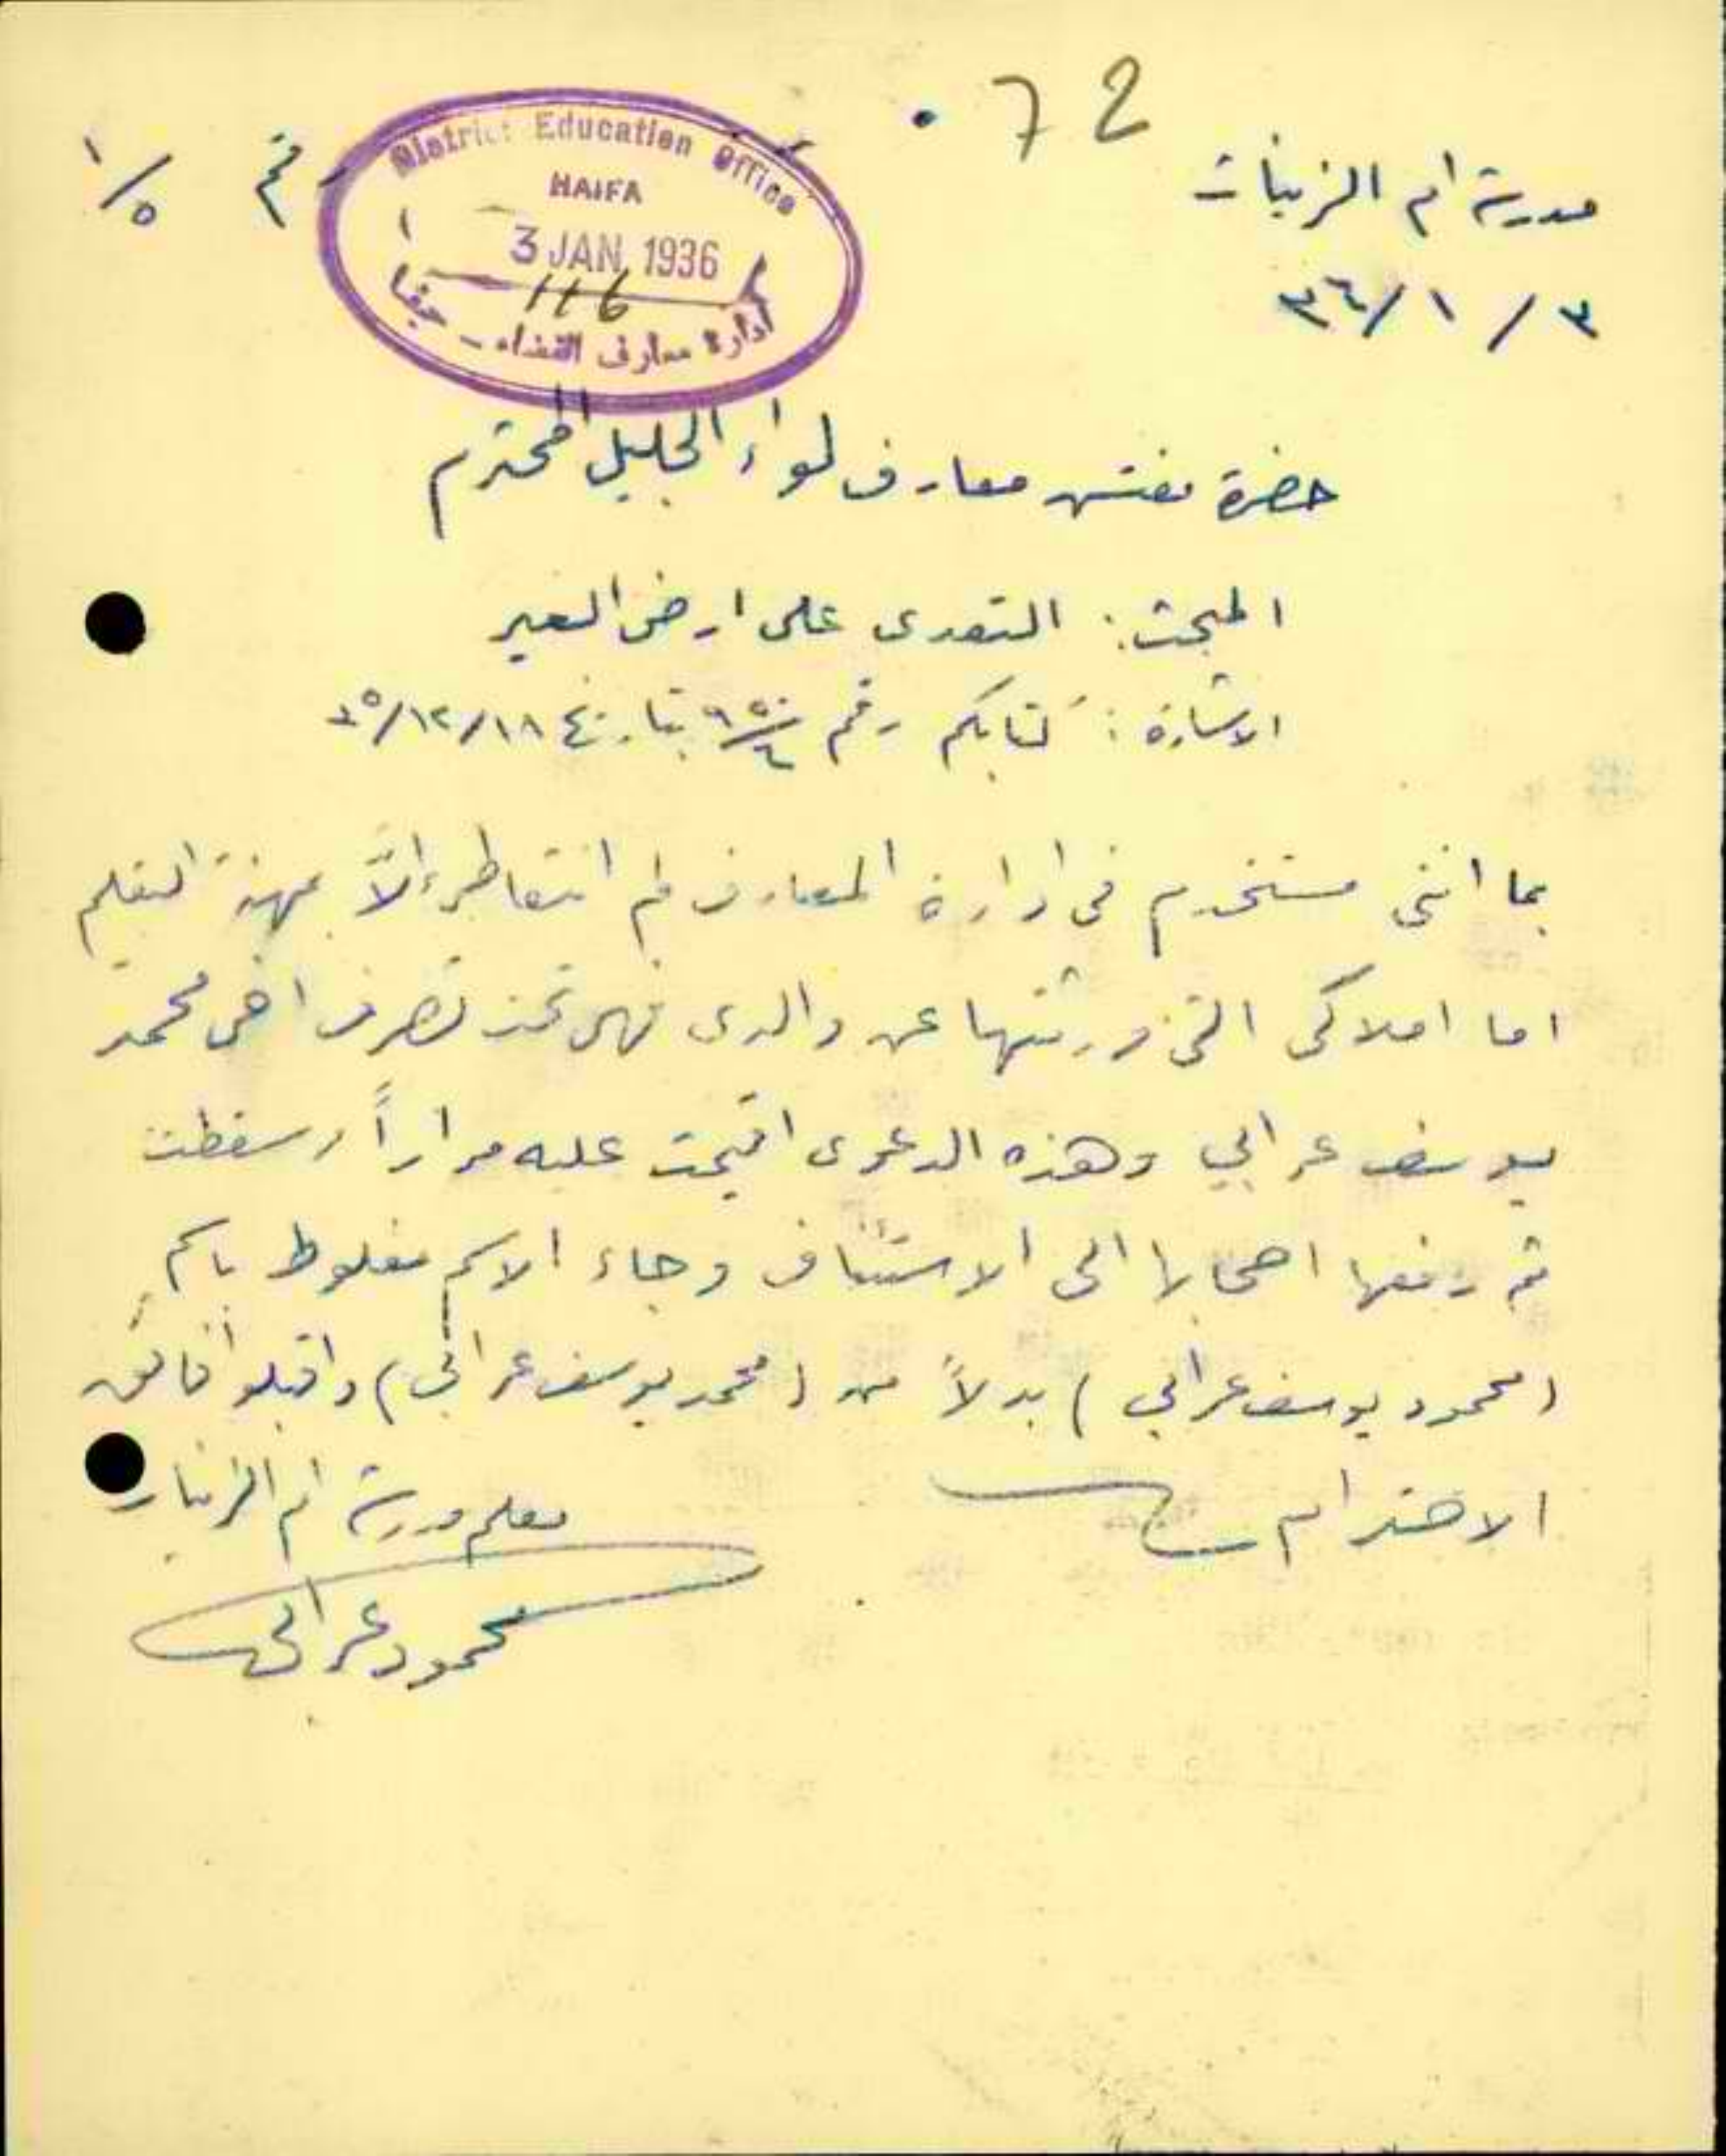 72
مدرسة ام الزينات
٣ / ١ / ٣٦
رقم ١/٥
District Education Office
HAIFA
3 JAN 1936
116
ادارة معارف القضاء - حيفا
حضرة مفتش معارف لواء الجليل المحترم
المبحث: التعدى على ارض الغير
الاشارة: كتابكم رقم بتاريخ ١٨/١٢/٣٥
بما اننى مستخدم فى ادارة المعارف لم اتعاطى إلاّ مهنة التعليم
اما املاكى التى ورثتها عن والدى فهى تحت تصرف اخى محمد
يوسف عرابي وهذه الدعوى اقيمت عليه مراراً وسقطت
ثم رفعها اصحابها الى الاستئناف وجاء الاسم مغلوط باسم
(محمود يوسف عرابي) بدلاً من (محمد يوسف عرابي) واقبلوا فائق
الاحترام
معلم مدرسة ام الزينات
محمود عرابي